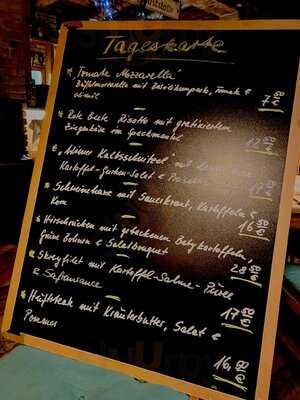 Tageskarte
"Tomate Mozzarella"
Büffelmozzarella mit Tomate &
7,50 €
Rote Beete Risotto mit gratiniertem
Ziegenkäse im Speckmantel
12,50 €
"Wiener Kalbsschnitzel" mit
Kartoffel-Gurken-Salat &
17,50 €
Schweinehaxe mit Sauerkraut, Kartoffeln &
Korn
16,50 €
Hirschrücken mit gebackenen Babykartoffeln,
grüne Bohnen & Salatbouquet
28,50 €
Steygfilet mit Kartoffel-Sahne-Püree
& Safransauce
17,50 €
Hüftsteak mit Kräuterbutter, Salat &
Pommes
16,50 €